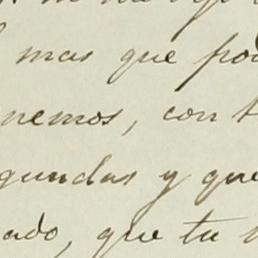 mas que pod
nemos, con t
gundas y que
ado, que tu